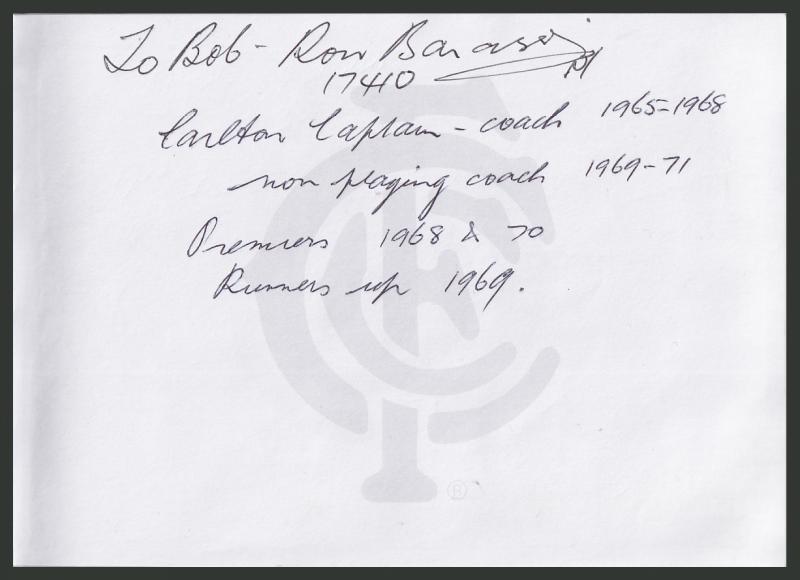 To Bob - Ron Barassi
17410
Carlton Captain - coach 1965-1968
non playing coach 1969-71
Premiers 1968 & 70
Runners up 1969.
CFC
®